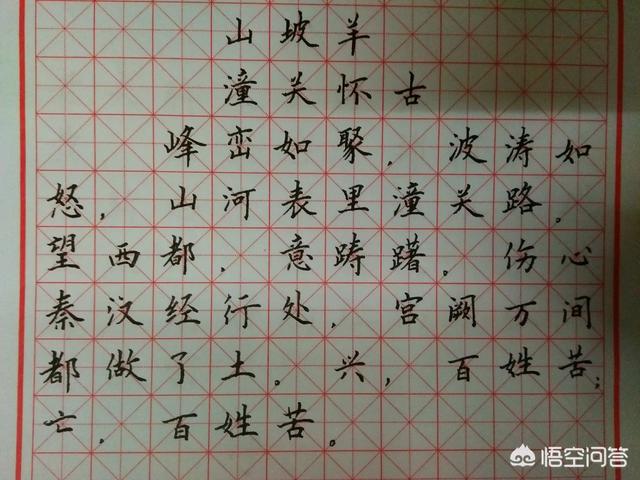 山坡羊
潼关怀古
峰峦如聚，波涛如
怒，山河表里潼关路。
望西都，意踌躇。伤心
秦汉经行处，宫阙万间
都做了土。兴，百姓苦；
亡，百姓苦。
悟空问答